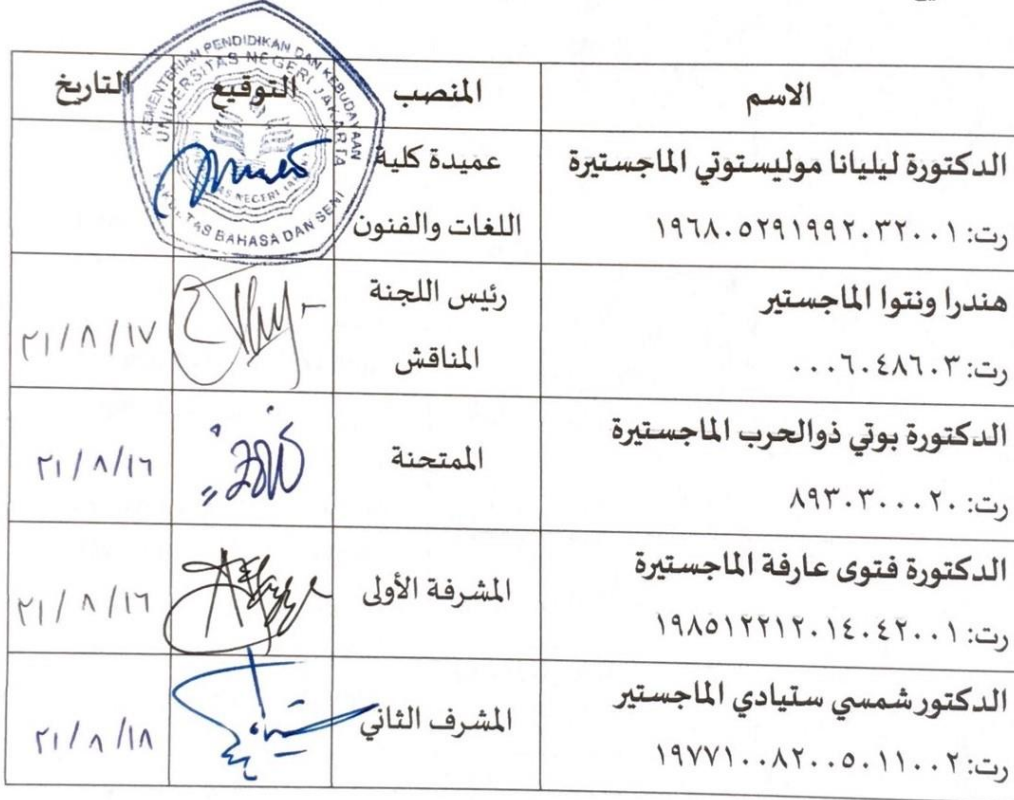 الاسم المنصب التوقيع التاريخ
الدكتورة ليليانا موليستوتي الماجستيرة
رت: ١٩٦٨٠٥٢٩١٩٩٢٠٣٢٠٠١
عميدة كلية
اللغات والفنون
KEMENTERIAN PENDIDIKAN DAN KEBUDAYAAN
UNIVERSITAS NEGERI JAKARTA
FAKULTAS BAHASA DAN SENI
هندرا ونتوا الماجستير
رت: ٠٠٠٦٠٤٨٦٠٣
رئيس اللجنة
المناقش
٢١/٨/١٧
الدكتورة بوتي ذوالحرب الماجستيرة
رت: ٨٩٣٠٣٠٠٠٢٠
الممتحنة
٢١/٨/١٦
الدكتورة فتوى عارفة الماجستيرة
رت: ١٩٨٥١٢٢١٢٠١٤٠٤٢٠٠١
المشرفة الأولى
٢١/٨/١٦
الدكتور شمسي ستيادي الماجستير
رت: ١٩٧٧١٠٠٨٢٠٠٥٠١١٠٠٢
المشرف الثاني
٢١/٨/١٨